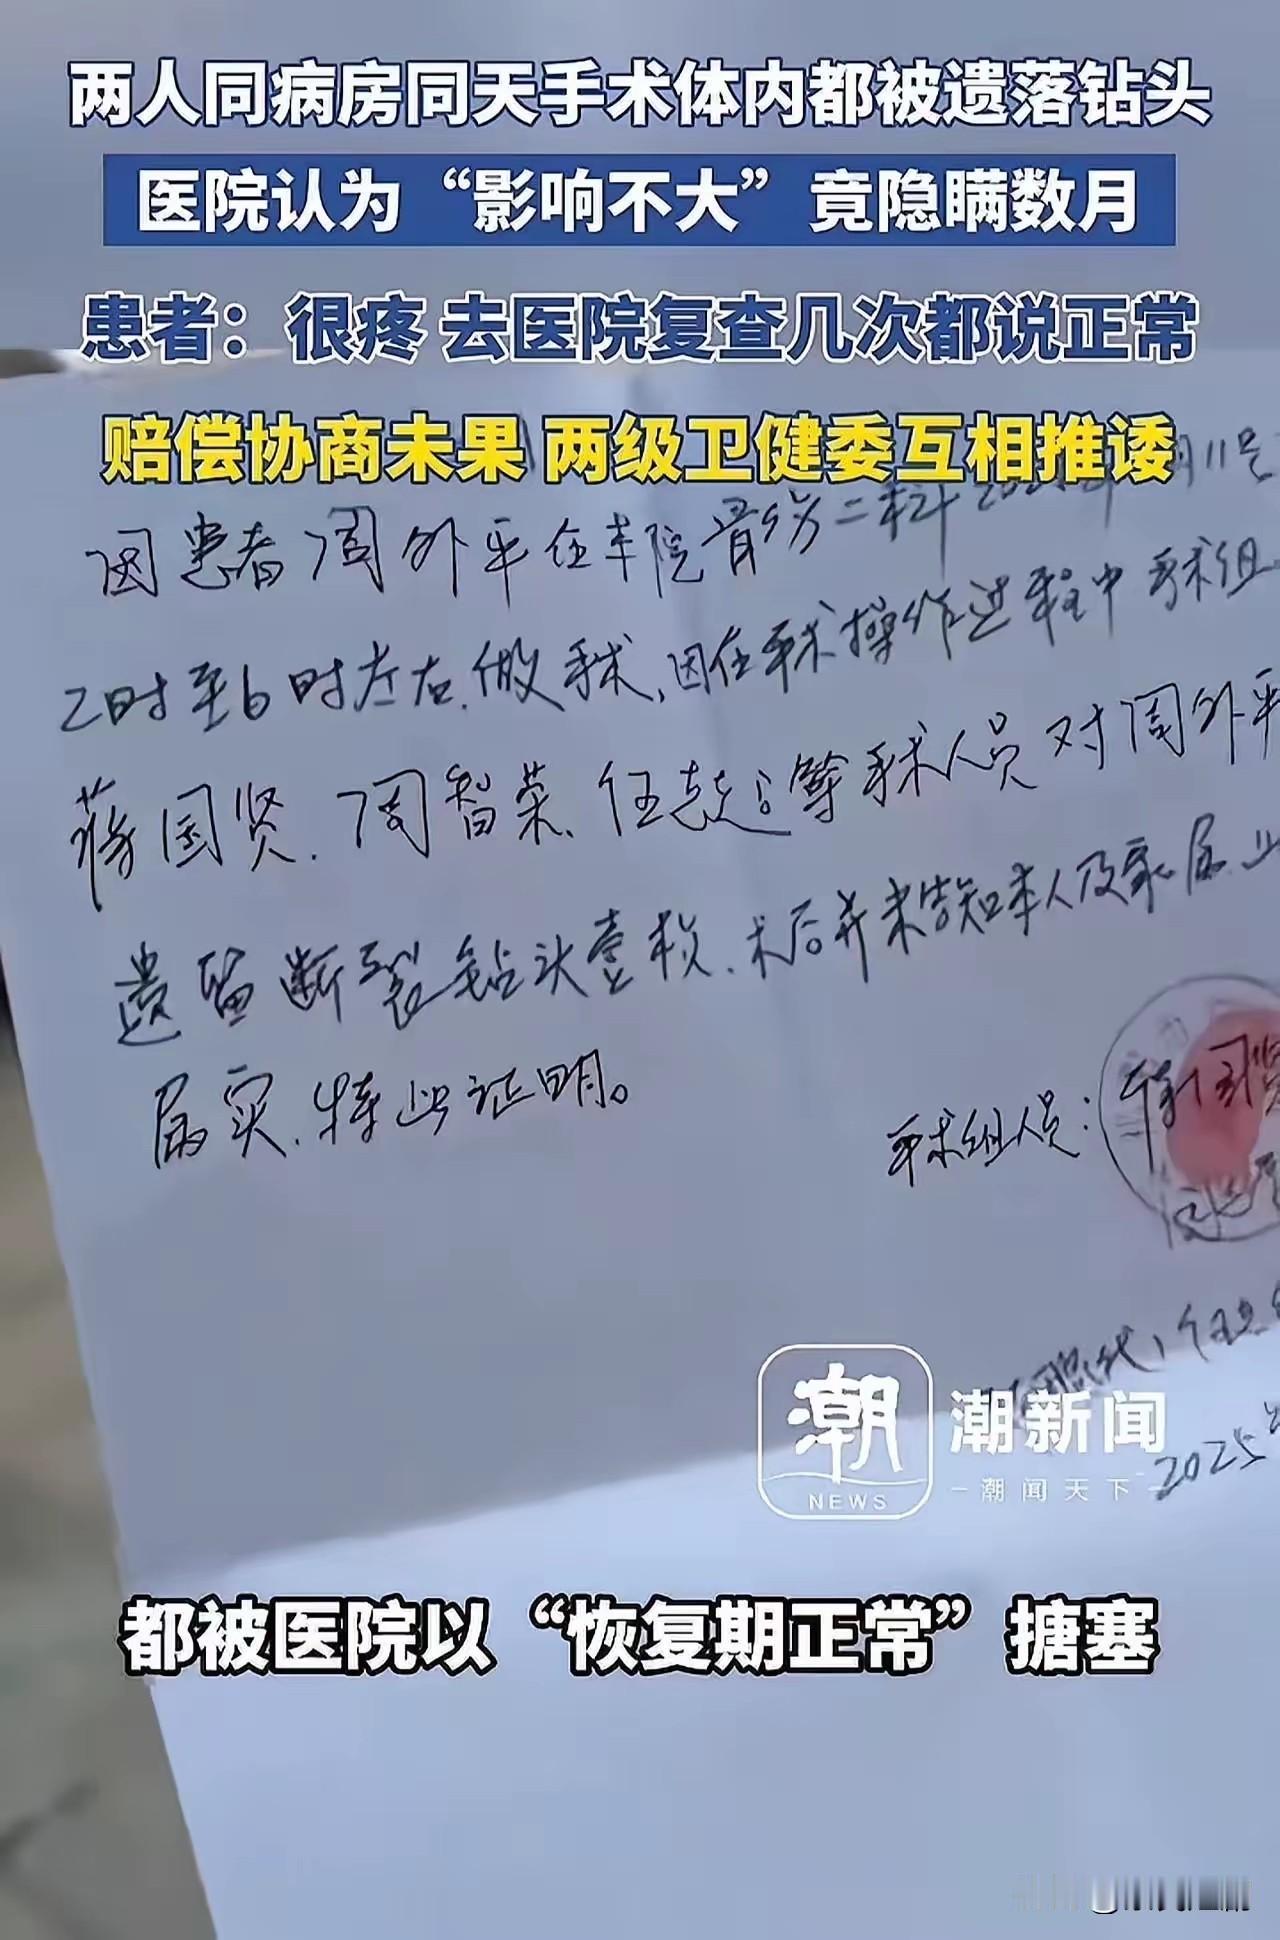 两人同病房同天手术体内都被遗落钻头
医院认为“影响不大”竟隐瞒数月
患者：很疼 去医院复查几次都说正常
赔偿协商未果 两级卫健委互相推诿
月11号
因患者周外平在本院骨伤二科
2时至6时左右.做手术,因在手术操作过程中手术组
蒋国贤.周智荣.任志远等手术人员对周外平
遗留断裂钻头壹枚.术后并未告知本人及家属.
属实.特此证明。
手术组人员：蒋国贤
2025年
潮
NEWS
潮新闻
潮闻天下
都被医院以“恢复期正常”搪塞